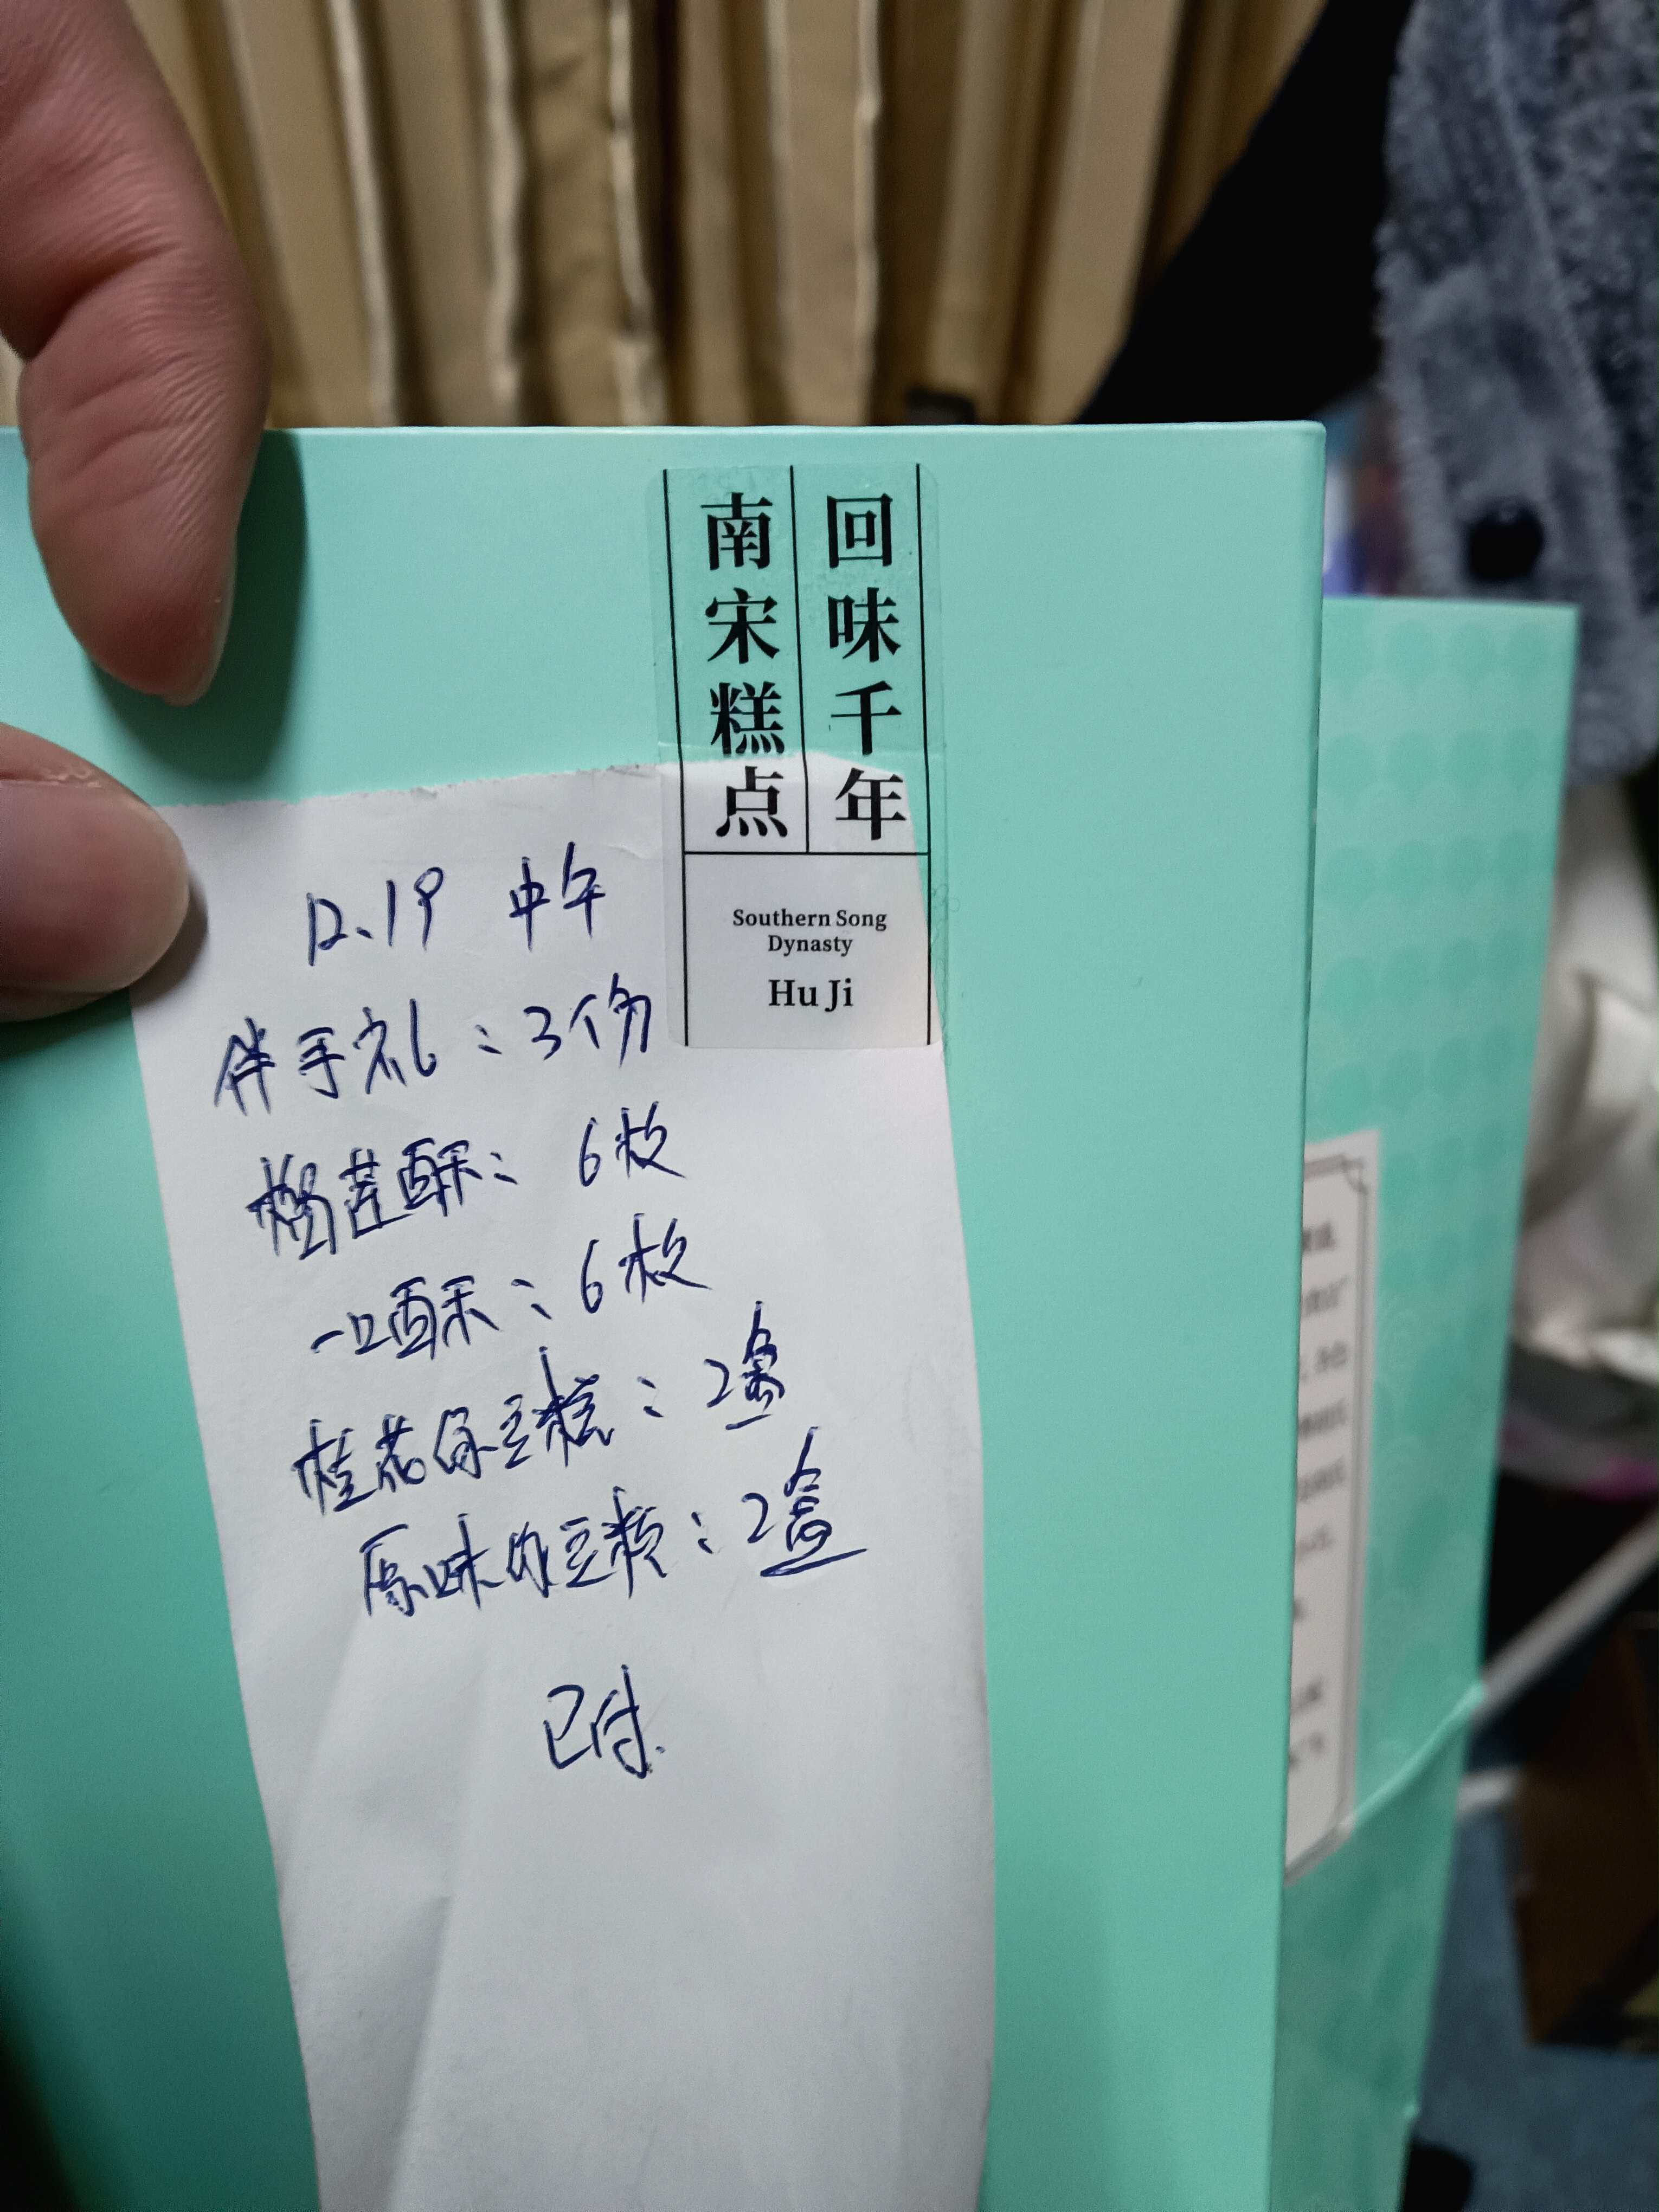 回味千年
南宋糕点
Southern Song
Dynasty
Hu Ji
12.19 中午
伴手礼：3份
酥：6枚
一口酥：6枚
桂花绿豆糕：2盒
原味绿豆糕：2盒
已付.